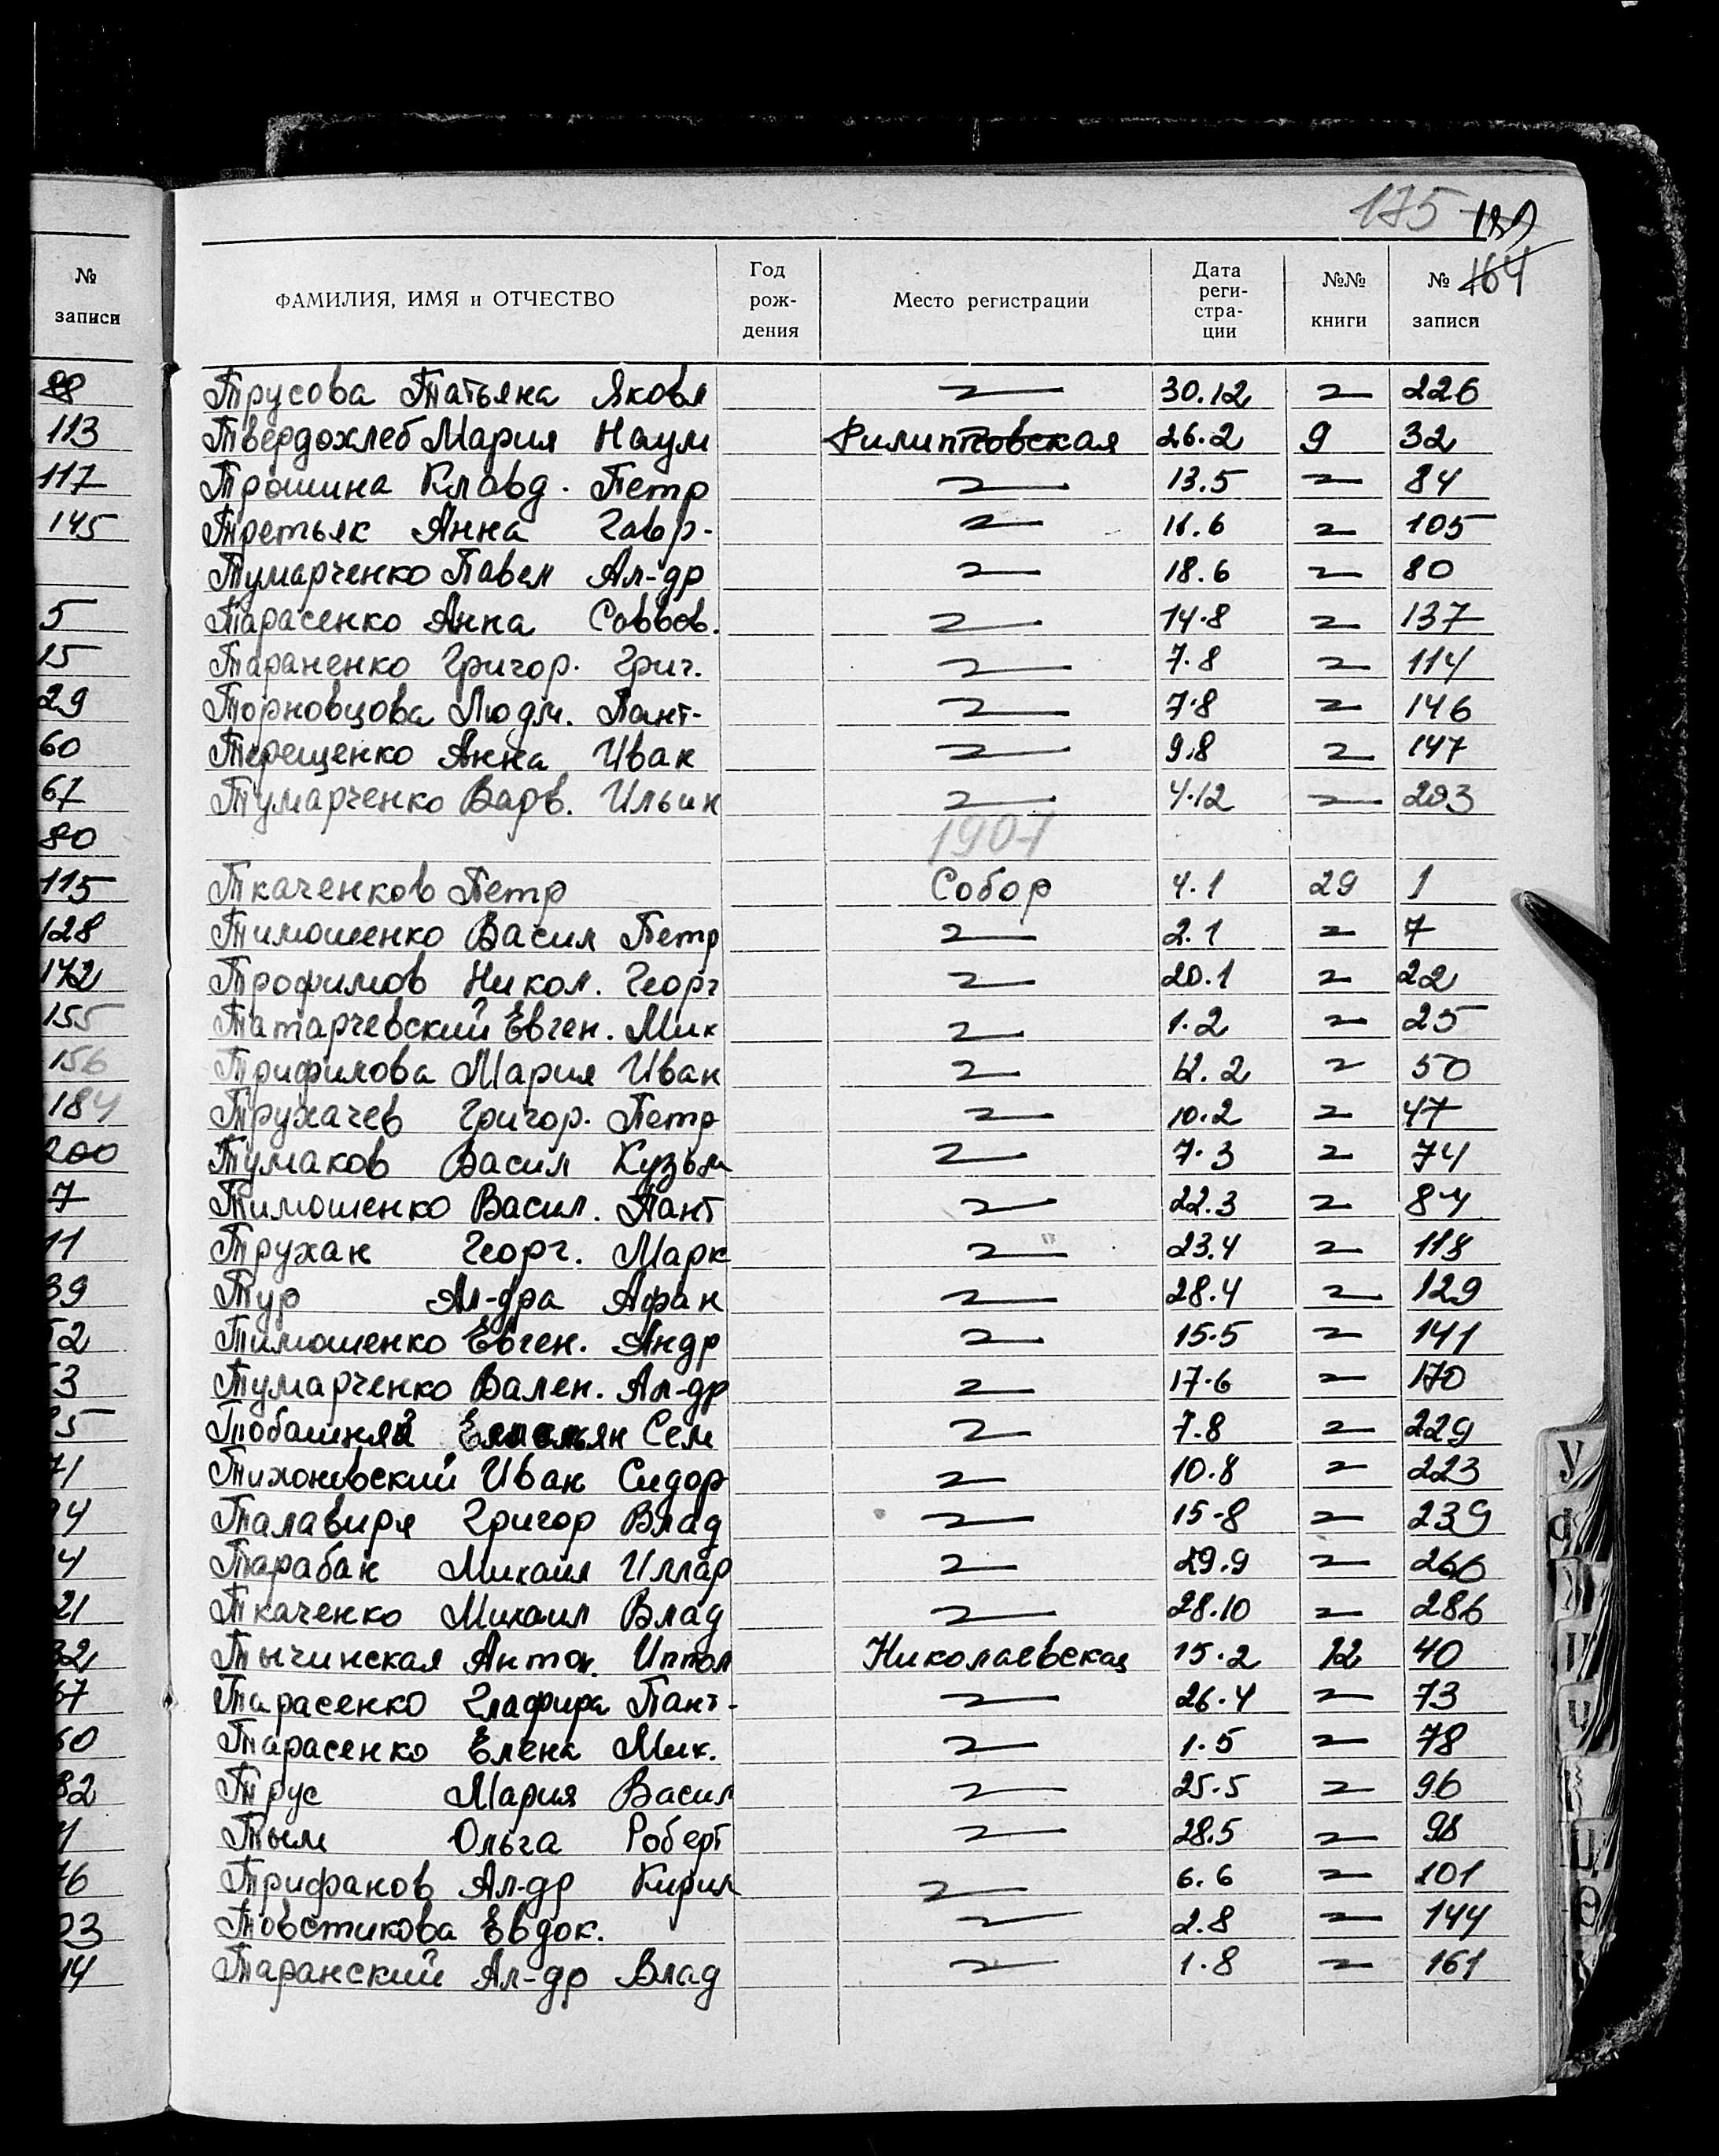 175 189
164
№ записи
ФАМИЛИЯ, ИМЯ и ОТЧЕСТВО Год рождения Место регистрации Дата регистрации №№ книги № записи
88 Трусова Татьяна Яковл — 30.12 — 226
113 Твердохлеб Мария Наум Филипповская 26.2 9 32
117 Трошина Клавд. Петр — 13.5 — 84
145 Третьяк Анна Гавр. — 11.6 — 105
Тумарченко Павел Ал-др — 18.6 — 80
5 Тарасенко Анна Саввов. — 14.8 — 137
15 Тараненко Григор. Григ. — 7.8 — 114
29 Торновцова Людм. Пант- — 7.8 — 146
60 Терещенко Анна Иван — 9.8 — 147
67 Тумарченко Варв. Ильин — 4.12 — 203
80 1907
115 Ткаченков Петр Собор 4.1 29 1
128 Тимошенко Васил Петр — 2.1 — 7
142 Трофимов Никол. Георг — 20.1 — 22
155 Татарчевский Евген. Мих — 1.2 — 25
156 Трифилова Мария Иван — 12.2 — 50
184 Трухачев Григор. Петр — 10.2 — 47
200 Тумаков Васил Кузьм — 7.3 — 74
7 Тимошенко Васил. Пант — 22.3 — 84
11 Трухан Георг. Марк — 23.4 — 118
39 Тур Ал-дра Афан — 28.4 — 129
52 Тимошенко Евген. Андр — 15.5 — 141
3 Тумарченко Вален. Ал-др — 17.6 — 170
5 Тобашняй Емельян Сем — 7.8 — 229
71 Тихоновский Иван Сидор — 10.8 — 223
4 Талавиря Григор Влад — 15.8 — 239
4 Тарабан Михаил Иллар — 29.9 — 260
21 Ткаченко Михаил Влад — 28.10 — 286
32 Тычинская Антон. Иппол Николаевская 15.2 12 40
67 Тарасенко Глафира Пант- — 26.4 — 73
60 Тарасенко Елена Мих. — 1.5 — 78
82 Трус Мария Васил — 25.5 — 96
1 Тым Ольга Роберт — 28.5 — 98
6 Трифанов Ал-др Кирил — 6.6 — 101
03 Товстикова Евдок. — 2.8 — 144
14 Таранский Ал-др Влад — 1.8 — 161
У
Ф